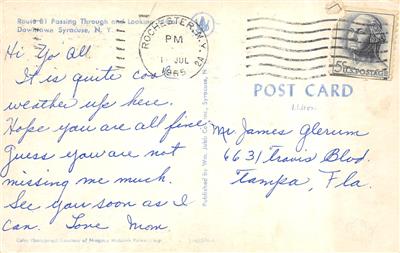 Route 81 Passing Through and Looking
Downtown Syracuse, N. Y.
Hi Yo' all
It is quite cool
weather up here.
Hope you are all fine.
Guess you are not
missing me much.
See you soon as I
can. Love Mom.
ROCHESTER, N.Y.
PM
JUL
1965
5¢ U.S. POSTAGE
POST CARD
Address
Mr. James Glerum
6631 Travis Blvd.
Tampa, Fla.
Published by Wm. Jubb Co., Inc., Syracuse, N.